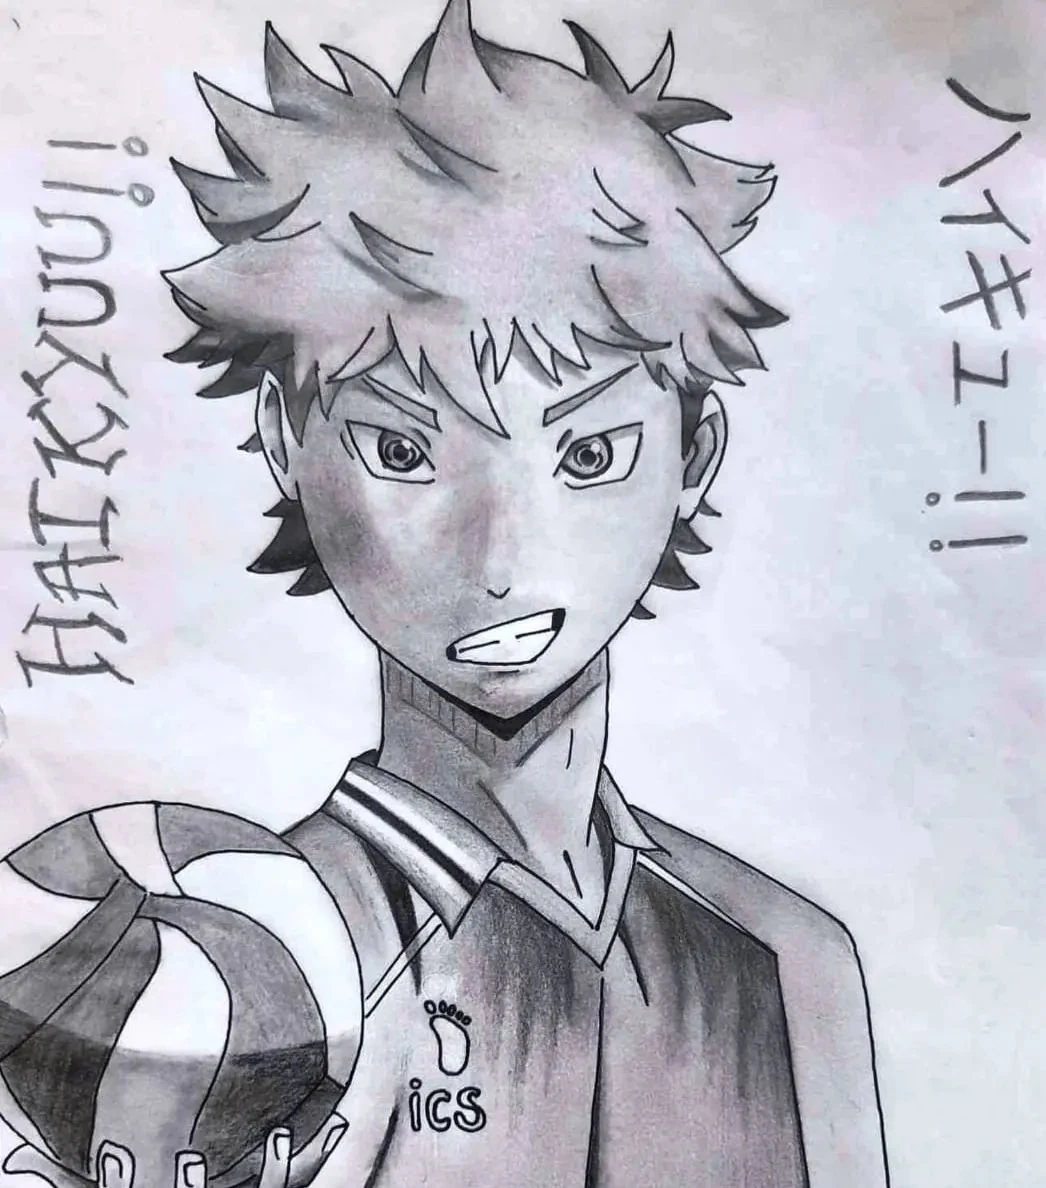 HAIKYUU!!
ハイキュー!!
ics